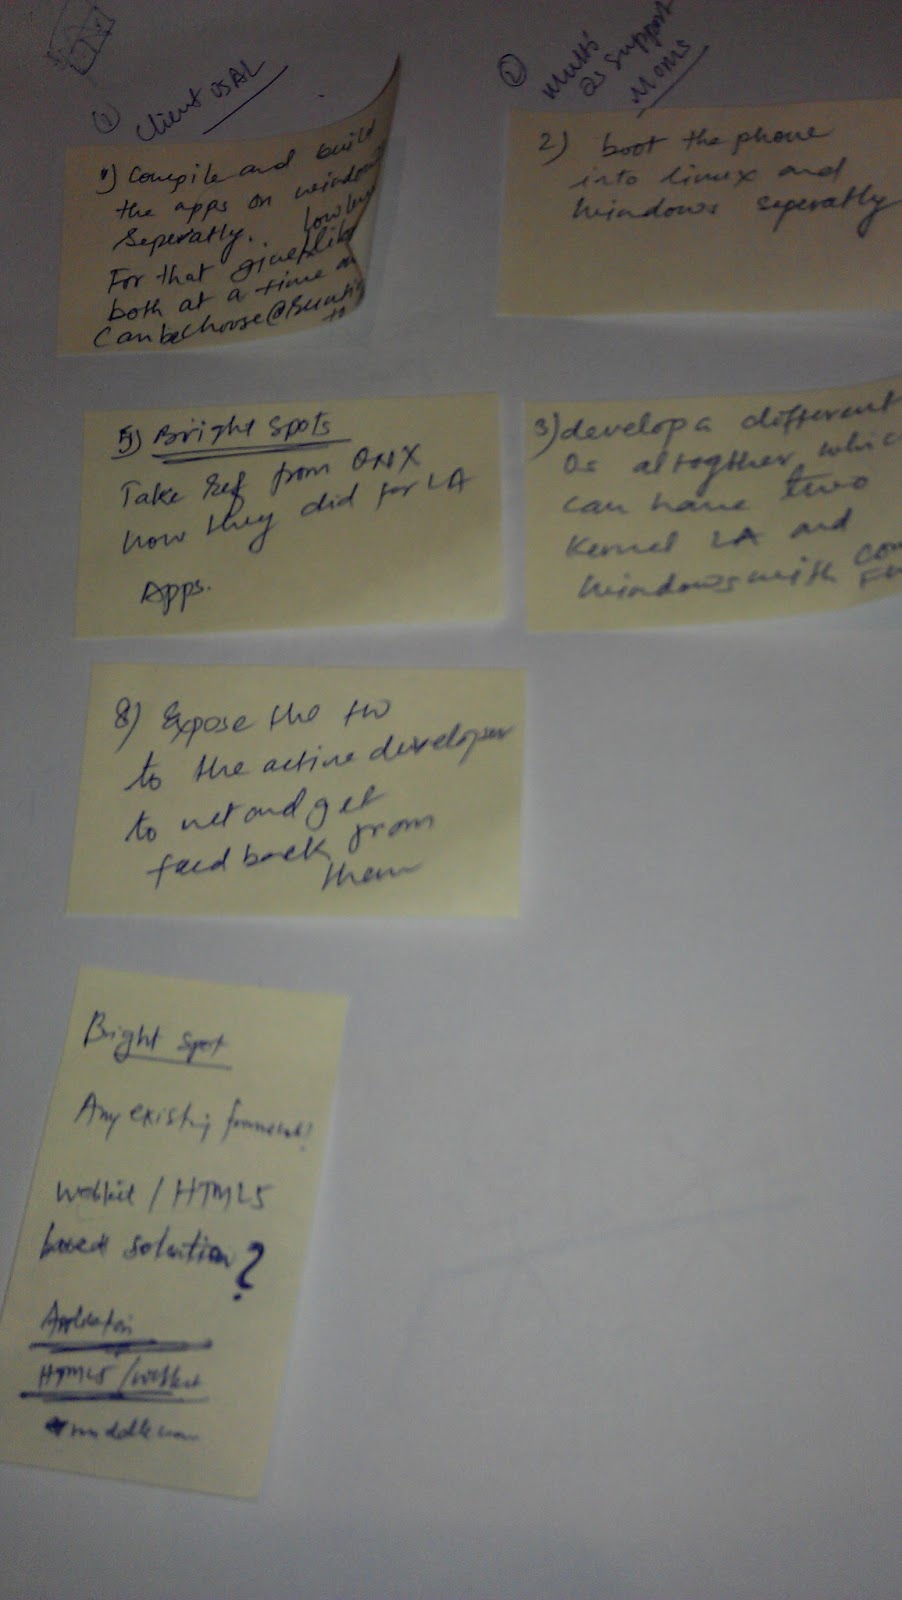 ① Client USAL
1) Compile and build
the apps on windows
Seperatly.
For that
both at a time
Can be choose @
5) Bright spots
Take Ref from QNX
how they did for LA
Apps.
8) Expose the HW
to the active developer
to net and get
feed back from
them
Bright spot
Any existing framework?
Webkit / HTML5
based solution?
Application
HTML5 / Webkit
middleware
② Multi
os support
Moms
2) boot the phone
into linux and
windows seperatly
3) develop a different
Os altogther which
can have two
Kernel LA and
windows with